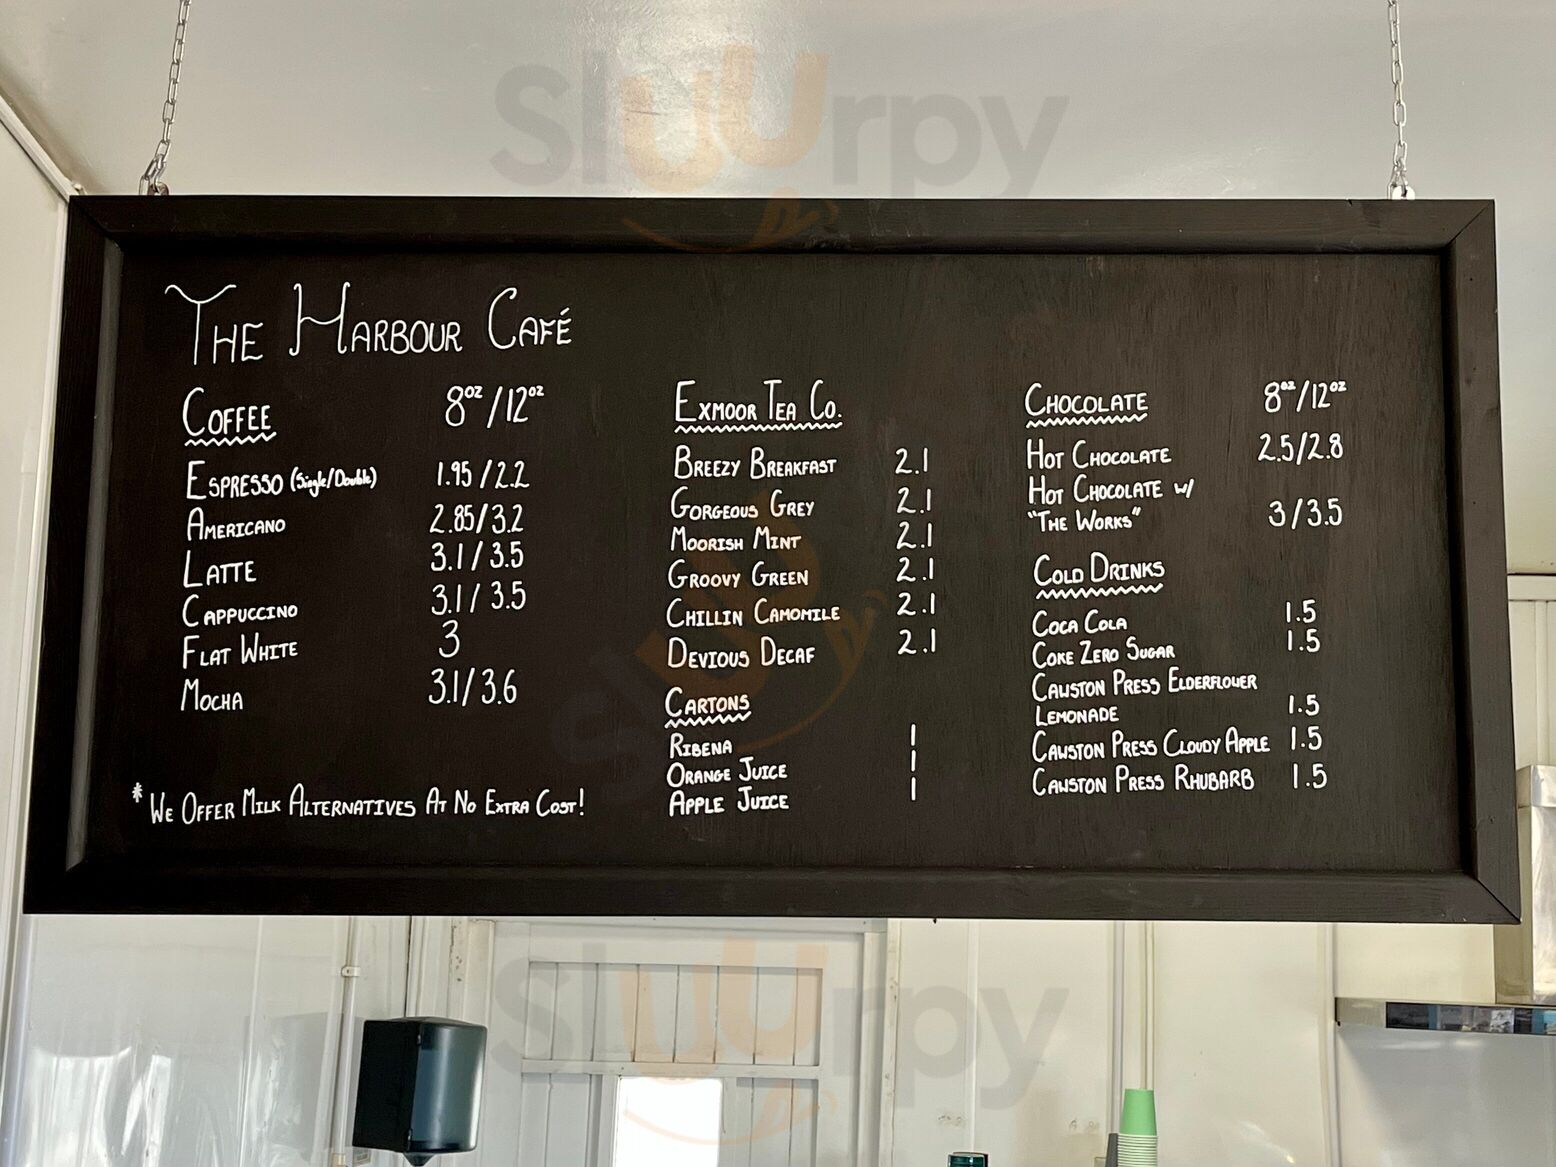 Sluurpy
THE HARBOUR CAFÉ
COFFEE 8oz/12oz
ESPRESSO (Single/Double) 1.95/2.2
AMERICANO 2.85/3.2
LATTE 3.1/3.5
CAPPUCCINO 3.1/3.5
FLAT WHITE 3
MOCHA 3.1/3.6
*WE OFFER MILK ALTERNATIVES AT NO EXTRA COST!
EXMOOR TEA CO.
BREEZY BREAKFAST 2.1
GORGEOUS GREY 2.1
MOORISH MINT 2.1
GROOVY GREEN 2.1
CHILLIN CAMOMILE 2.1
DEVIOUS DECAF 2.1
CARTONS
RIBENA 1
ORANGE JUICE 1
APPLE JUICE 1
CHOCOLATE 8oz/12oz
HOT CHOCOLATE 2.5/2.8
HOT CHOCOLATE w/
"THE WORKS" 3/3.5
COLD DRINKS
COCA COLA 1.5
COKE ZERO SUGAR 1.5
CAWSTON PRESS ELDERFLOWER
LEMONADE 1.5
CAWSTON PRESS CLOUDY APPLE 1.5
CAWSTON PRESS RHUBARB 1.5
Sluurpy